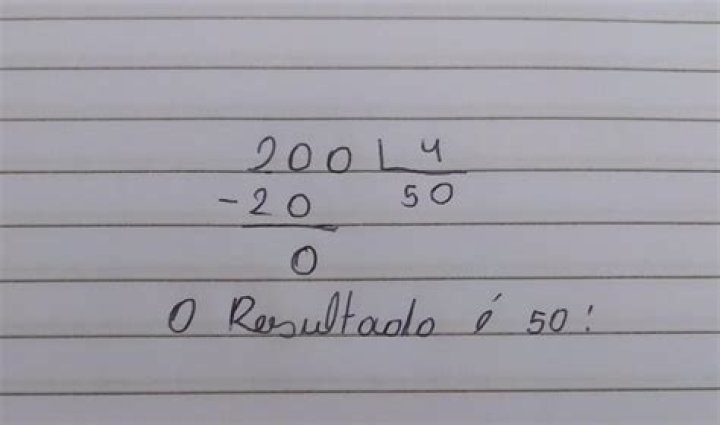 200 4
-20 50
0
O Resultado é 50!